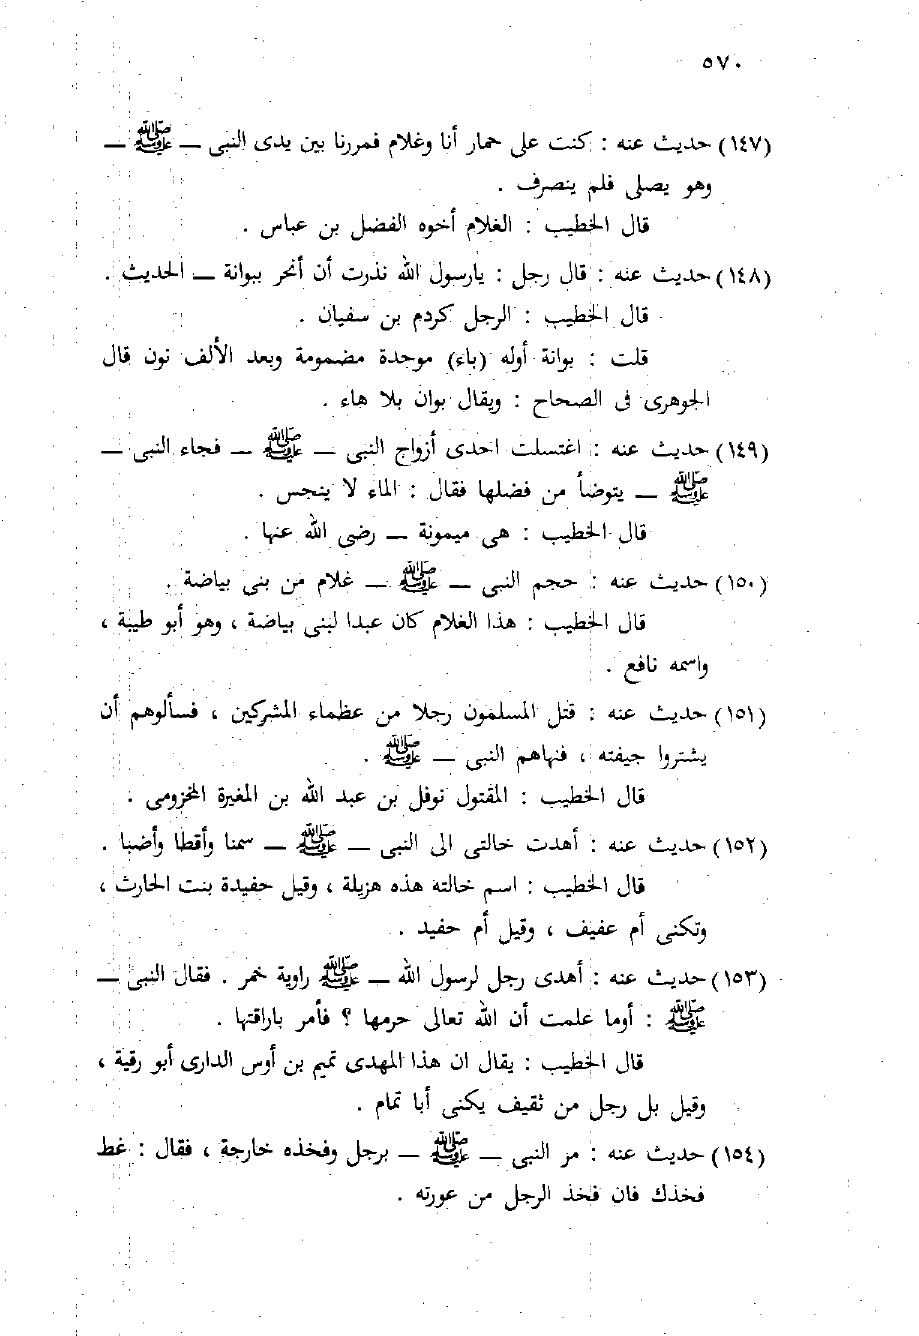 ٥٧٠
(١٤٧) حديث عنه : كنت على حمار أنا وغلام فمررنا بين يدى النبى ــ ﷺ ــ
وهو يصلى فلم ينصرف .
قال الخطيب : الغلام أخوه الفضل بن عباس .
(١٤٨) حديث عنه : قال رجل : يارسول الله نذرت أن أنحر ببوانة ــ الحديث .
قال الخطيب : الرجل كردم بن سفيان .
قلت : بوانة أوله (باء) موحدة مضمومة وبعد الألف نون قال
الجوهرى فى الصحاح : ويقال بوان بلا هاء .
(١٤٩) حديث عنه : اغتسلت احدى أزواج النبى ــ ﷺ ــ فجاء النبى ــ
ﷺ ــ يتوضأ من فضلها فقال : الماء لا ينجس .
قال الخطيب : هى ميمونة ــ رضى الله عنها .
(١٥٠) حديث عنه : حجم النبى ــ ﷺ ــ غلام من بنى بياضة .
قال الخطيب : هذا الغلام كان عبدا لبنى بياضة ، وهو أبو طيبة ،
واسمه نافع .
(١٥١) حديث عنه : قتل المسلمون رجلا من عظماء المشركين ، فسألوهم أن
يشتروا جيفته ، فنهاهم النبى ــ ﷺ .
قال الخطيب : المقتول نوفل بن عبد الله بن المغيرة المخزومى .
(١٥٢) حديث عنه : أهدت خالتى الى النبى ــ ﷺ ــ سمنا وأقطا وأضبا .
قال الخطيب : اسم خالته هذه هزيلة ، وقيل حفيدة بنت الحارث ،
وتكنى أم عفيف ، وقيل أم حفيد .
(١٥٣) حديث عنه : أهدى رجل لرسول الله ــ ﷺ راوية خمر . فقال النبى ــ
ﷺ : أوما علمت أن الله تعالى حرمها ؟ فأمر باراقتها .
قال الخطيب : يقال ان هذا المهدى تميم بن أوس الدارى أبو رقية ،
وقيل بل رجل من ثقيف يكنى أبا تمام .
(١٥٤) حديث عنه : مر النبى ــ ﷺ ــ برجل وفخذه خارجة ، فقال : غط
فخذك فان فخذ الرجل من عورته .